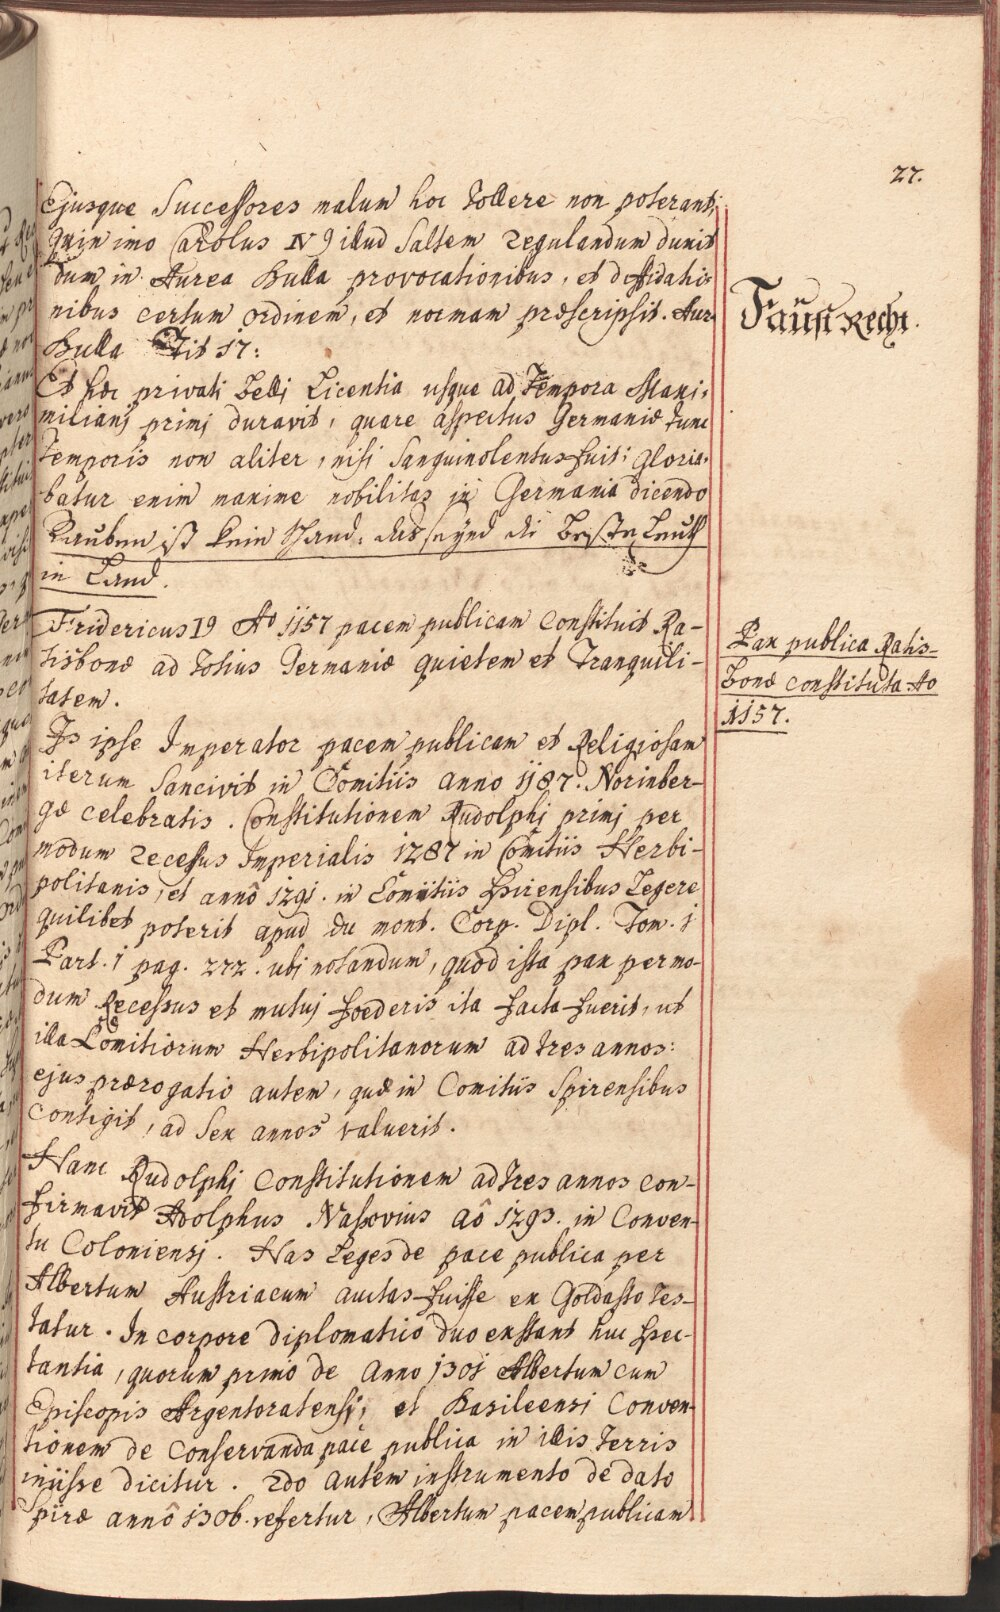 27.
Ejusque Successores malum hoc tollere non poterant,
quin imo Carolus IV9 illud saltem regulandum dunit
dum in Aurea Bulla provocationibus, et diffidatio-
nibus certum ordinem, et normam præscripsit. Aur.
Bulla Tit 17:
Faust Recht.
Et hæc privati belli Licentia usque ad Tempora Maxi-
milianj primj duravit, quare aspectus Germaniæ tunc
Temporis non aliter, nisi sanguinolentus fuit; gloria-
batur enim maxime nobilitas in Germania dicendo
Rauben ist kein Schand, das seynd die Beste Leuth
in Land.
Fridericus I9 Ao 1157 pacem publicam constituit Ra-
tisbonæ ad totius Germaniæ quietem et Tranquili-
tatem.
Pax publica Ratis-
bonæ constituta Ao
1157.
Is ipse Imperator pacem publicam et Religiosam
iterum sancivit in Comitiis anno 1187. Norinber-
gæ celebratis. Constitutionem Rudolphj primj per
modum recessus Imperialis 1287 in Comitiis Herbi-
politanis, et annô 1291. in Comitiis Spirensibus Legere
quilibet poterit apud du mont. Corp. Dipl. Tom. j
Part. j pag. 272. ubj notandum, quod ista pax per mo-
dum Recessus et mutuj foederis ita facta fuerit, ut
illa Comitiorum Herbipolitanorum ad tres annos:
ejus prærogatio autem, quæ in Comitiis Spirensibus
contigit, ad sex annos valuerit.
Hanc Rudolphj Constitutionem ad tres annos con-
firmavit Adolphus Nassovius aô 1293. in Conven-
tu Coloniensj. Has Leges de pace publica per
Albertum Austriacum auctas fuisse ex Goldasto tes-
tatur. In corpore diplomatico duo exstant huc spec-
tantia, quorum primo de Anno 1301 Albertum cum
Episcopis Argentoratensj, et Basileensi Conven-
tionem de conservanda pace publica in illis terris
iniisse dicitur. 2do autem instrumento de dato
Spiræ annô 1306. refertur, Albertum pacem publicam